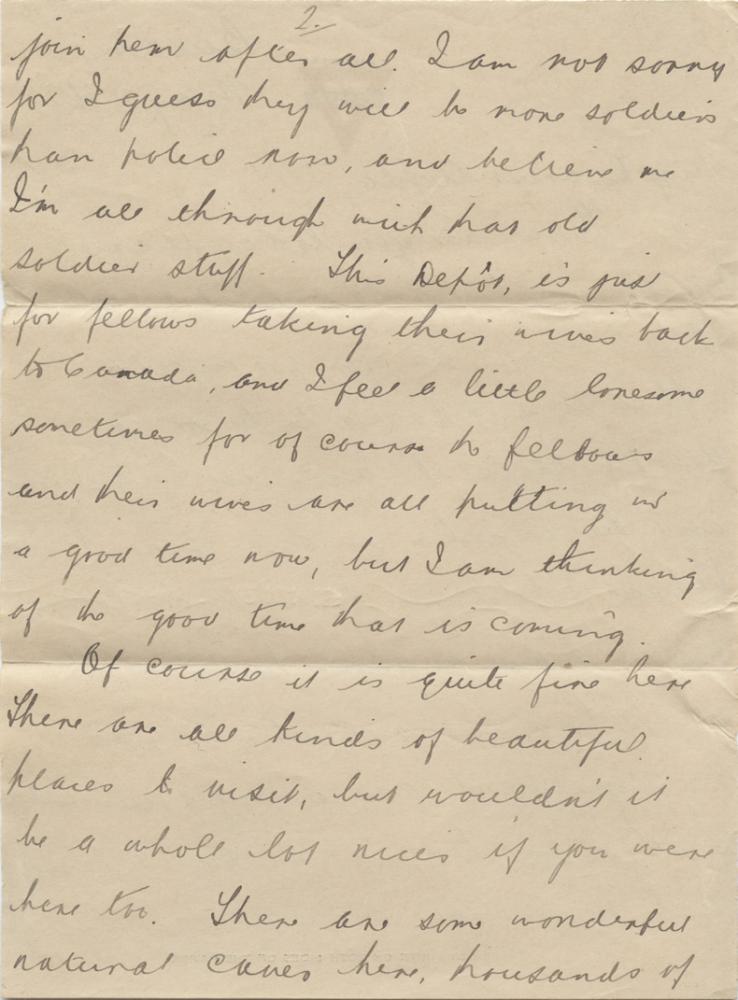 2.
join them after all. I am not sorry
for I guess they will be more soldiers
than police now, and believe me
I'm all through with that old
soldier stuff. This Depôt, is just
for fellows taking their wives back
to Canada, and I feel a little lonesome
sometimes for of course the fellows
and their wives are all putting in
a good time now, but I am thinking
of the good time that is coming.
Of course it is quite fine here
There are all kinds of beautiful
places to visit, but wouldn't it
be a whole lot nicer if you were
here too. There are some wonderful
natural caves here, thousands of